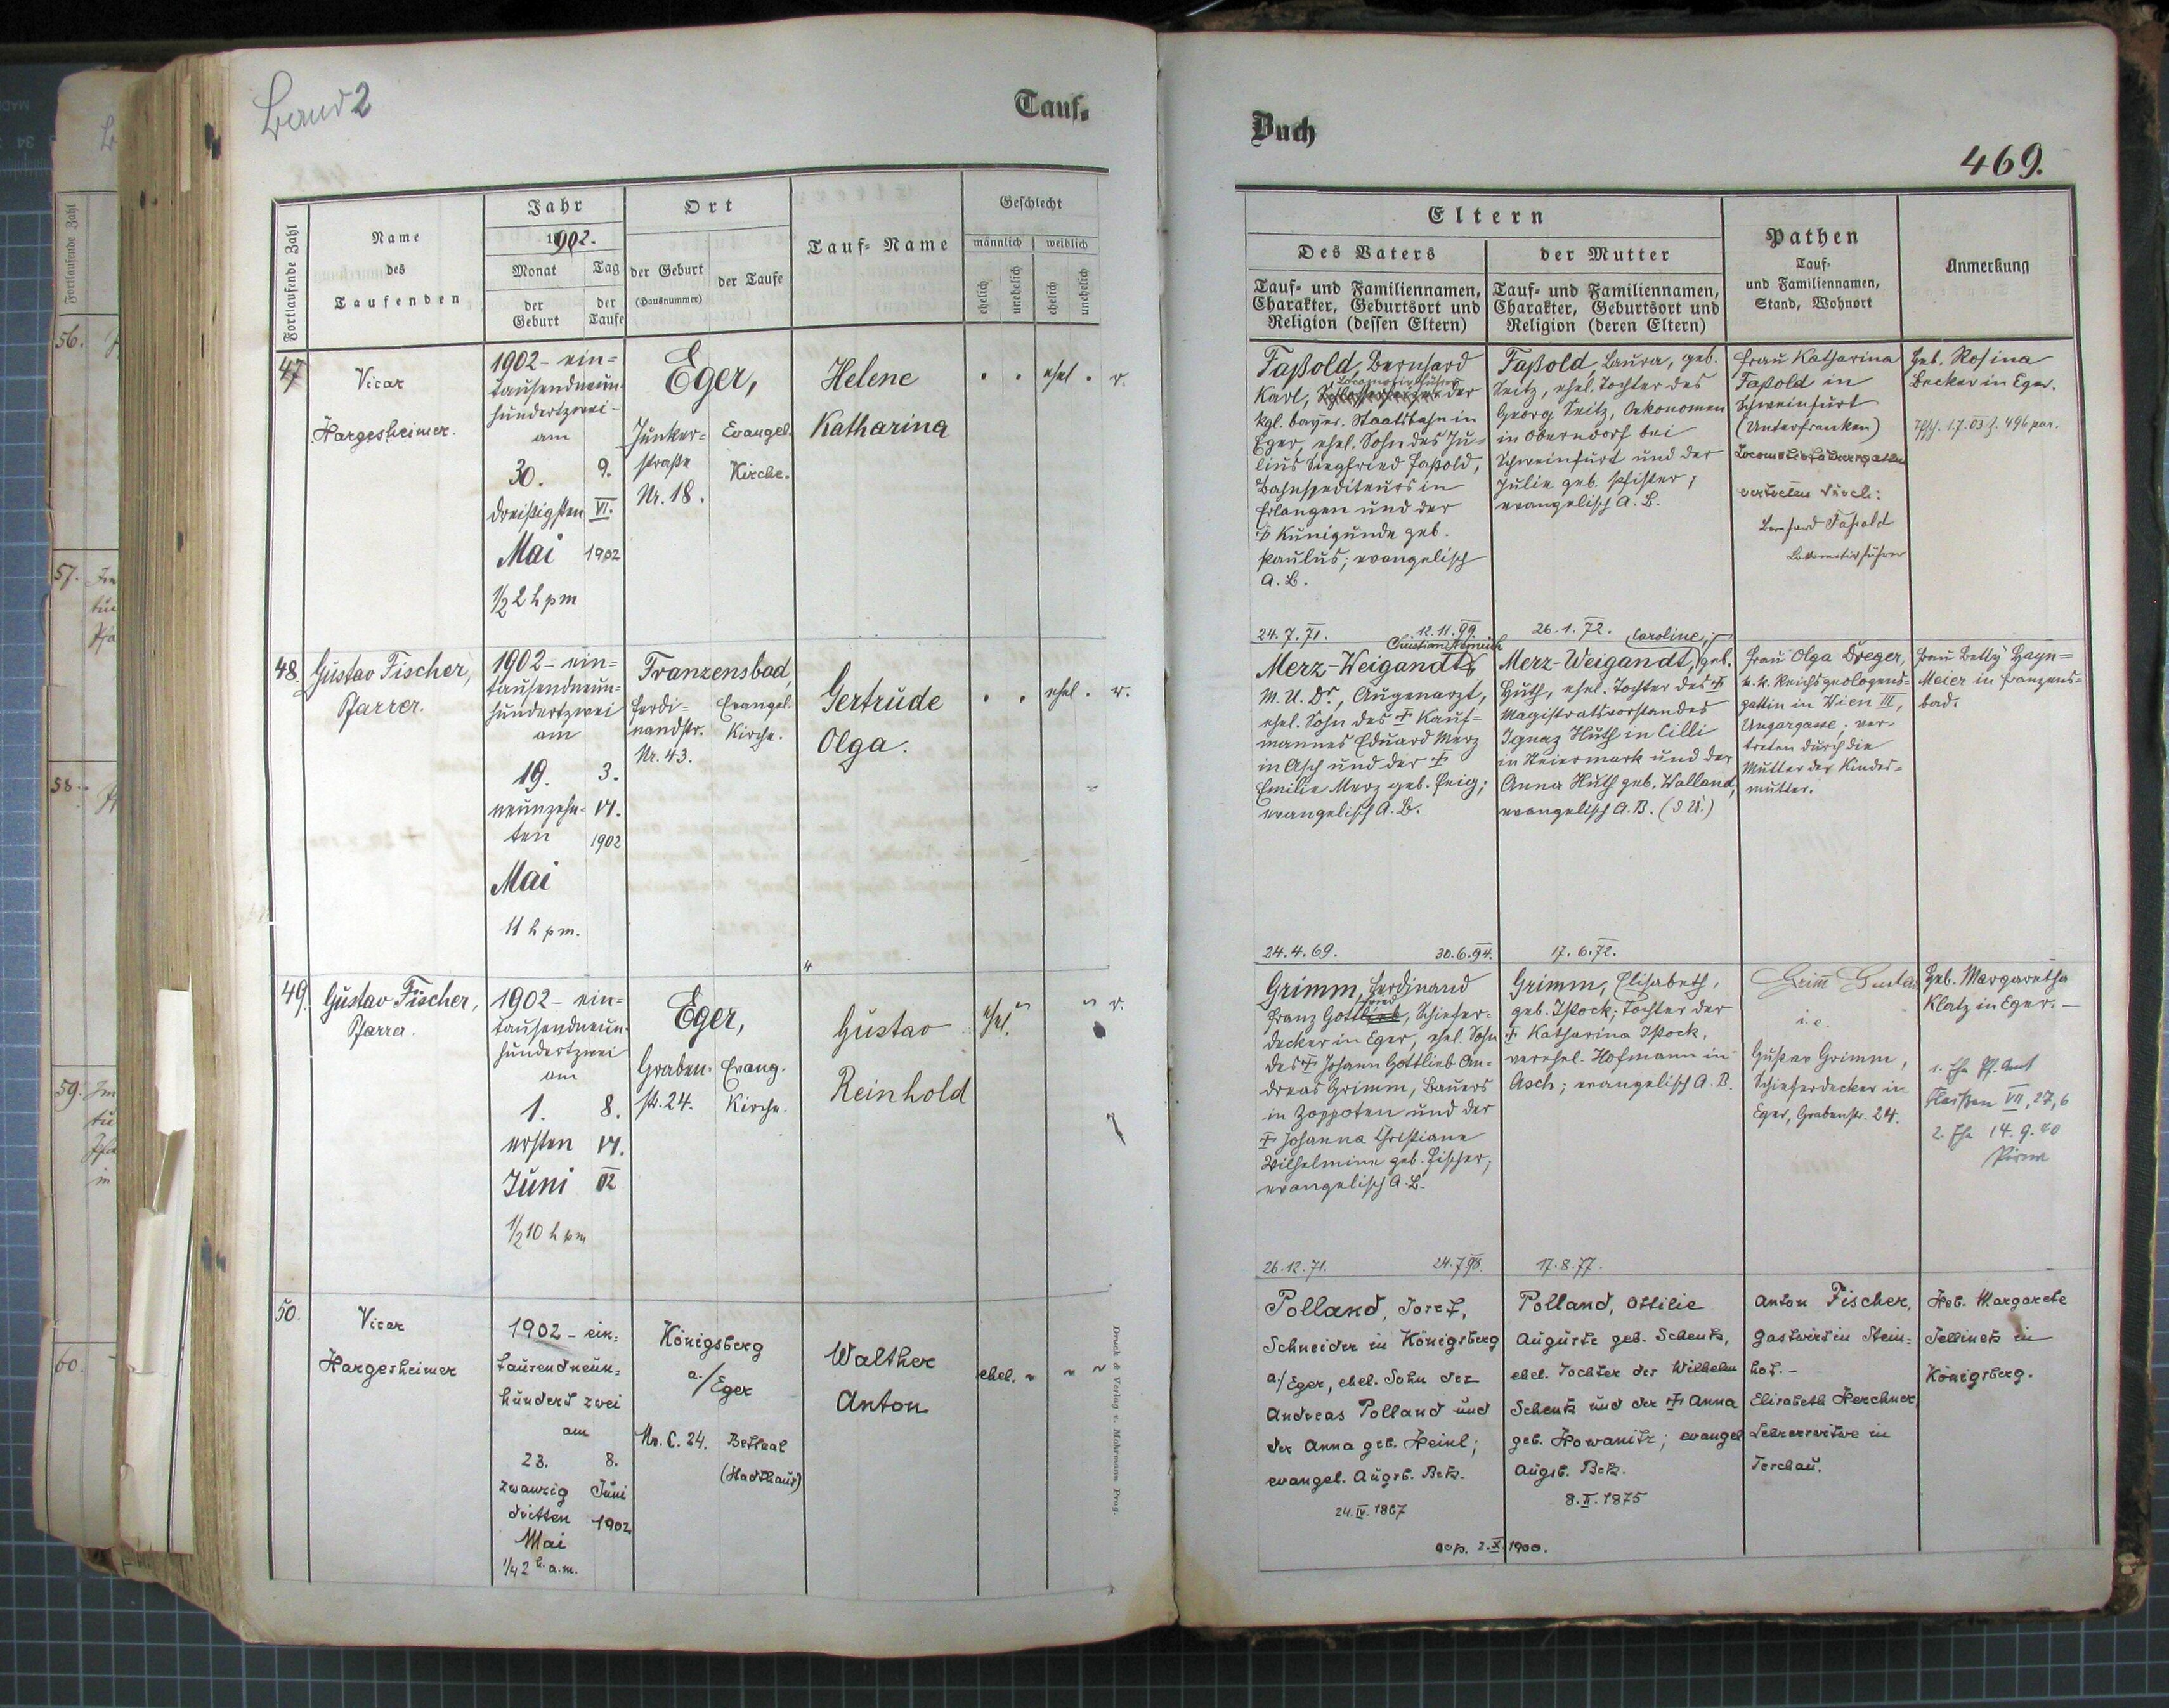 Band 2
Tauf-
Buch
469.
Fortlaufende Zahl
Name
des
Taufenden
Jahr
1902.
Monat
der
Geburt
Tag
der
Taufe
Ort
der Geburt
(Hausnummer)
der Taufe
Tauf-Name
Geschlecht
männlich
weiblich
ehelich
unehelich
ehelich
unehelich
Eltern
Des Vaters
Tauf- und Familiennamen,
Charakter, Geburtsort und
Religion (dessen Eltern)
der Mutter
Tauf- und Familiennamen,
Charakter, Geburtsort und
Religion (deren Eltern)
Pathen
Tauf-
und Familiennamen,
Stand, Wohnort
Anmerkung
47
Vicar
Hargesheimer.
1902 - ein=
tausendneun=
hundertzwei-
am
30.
dreißigsten
Mai
½ 2 h pm
9.
VI.
1902
Eger,
Junker=
straße
Nr. 18.
Evangel.
Kirche.
Helene
Katharina
ehel.
v.
Faßold, Bernhard
Karl, Locomotivführer der
kgl. bayer. Staatsbahn in
Eger, ehel. Sohn des Ju=
lius Siegfried Faßold,
Bahnspediteurs in
Erlangen und der
† Kunigunde geb.
Paulus; evangelisch
A. B.
24. 7. 71.
12. 11. 99.
Faßold, Laura, geb.
Seitz, ehel. Tochter des
Georg Seitz, Oekonomen
in Oberndorf bei
Schweinfurt und der
Julie geb. Pfister;
evangelisch A. B.
26. 1. 72.
Frau Katharina
Faßold in
Schweinfurt
(Unterfranken)
vertreten durch:
Bernhard Faßold
Lokomotivführer
Heb. Rosina
Becker in Eger.
1.7.03 Z. 496 par.
48.
Gustav Fischer,
Pfarrer.
1902 - ein=
tausendneun=
hundertzwei
am
19.
neunzehn=
ten
Mai
11 h pm.
3.
VI.
1902
Franzensbad
Ferdi=
nandstr.
Nr. 43.
Evangel.
Kirche.
Gertrude
Olga.
ehel.
v.
Christian Heinrich
Merz-Weigandt,
M. U. Dr., Augenarzt,
ehel. Sohn des † Kauf=
mannes Eduard Merz
in Asch und der †
Emilie Merz geb. Feig;
evangelisch A. B.
24. 4. 69.
30. 6. 94.
Caroline,
Merz-Weigandt, geb.
Huth, ehel. Tochter des †
Magistratsvorstandes
Ignaz Huth in Cilli
in Steiermark und der
Anna Huth geb. Walland,
evangelisch A. B.
17. 6. 72.
Frau Olga Dreger,
k. k. Reichsgeologens=
gattin in Wien III,
Ungargasse; ver=
treten durch die
Mutter der Kindes=
mutter.
Frau Betty Hayn=
Meier in Franzens=
bad.
49.
Gustav Fischer,
Pfarrer.
1902 - ein=
tausendneun=
hundertzwei
am
1.
ersten
Juni
½ 10 h pm
8.
VI.
02
Eger,
Graben=
str. 24.
Evang.
Kirche.
Gustav
Reinhold
ehel.
v.
Grimm, Ferdinand
Franz Gottfried, Schiefer=
decker in Eger, ehel. Sohn
des † Johann Gottlieb An=
dreas Grimm, Bauers
in Zoppoten und der
† Johanna Christiane
Wilhelmine geb. Fischer;
evangelisch A. B.
26. 12. 71.
24. 7. 98.
Grimm, Elisabeth,
geb. Istock; Tochter der
† Katharina Istock,
verehel. Hofmann in
Asch; evangelisch A. B.
17. 8. 77.
Grim Gustav
i. e.
Gustav Grimm,
Schieferdecker in
Eger, Grabenstr. 24.
Heb. Margaretha
Klatz in Eger. -
1. Ehe Pf. Amt
Fleißen VII, 27, 6
2. Ehe 14. 9. 40
Pirna
50.
Vicar
Hargesheimer
1902 - ein=
tausendneun=
hundert zwei
am
23.
zwanzig
dritten
Mai
¼ 2 h. a. m.
8.
Juni
1902
Königsberg
a./Eger
Nr. C. 24.
Betsaal
(Stadthaus)
Walther
Anton
ehel.
Polland, Josef,
Schneider in Königsberg
a./Eger, ehel. Sohn des
Andreas Polland und
der Anna geb. Heinl;
evangel. Augsb. Bek.
24. IV. 1867
cop. 2. X. 1900.
Polland, Ottilie
Auguste geb. Schenk,
ehel. Tochter des Wilhelm
Schenk und der † Anna
geb. Howanitz; evangel
Augsb. Bek.
8. II. 1875
Anton Fischer,
Gastwirt in Stein=
hof. -
Elisabeth Herchner,
Lehrerswitwe in
Teschau.
Heb. Margarete
Jellinek in
Königsberg.
Druck & Verlag v. Mohrmann Prag.
56.
57.
58.
59.
60.